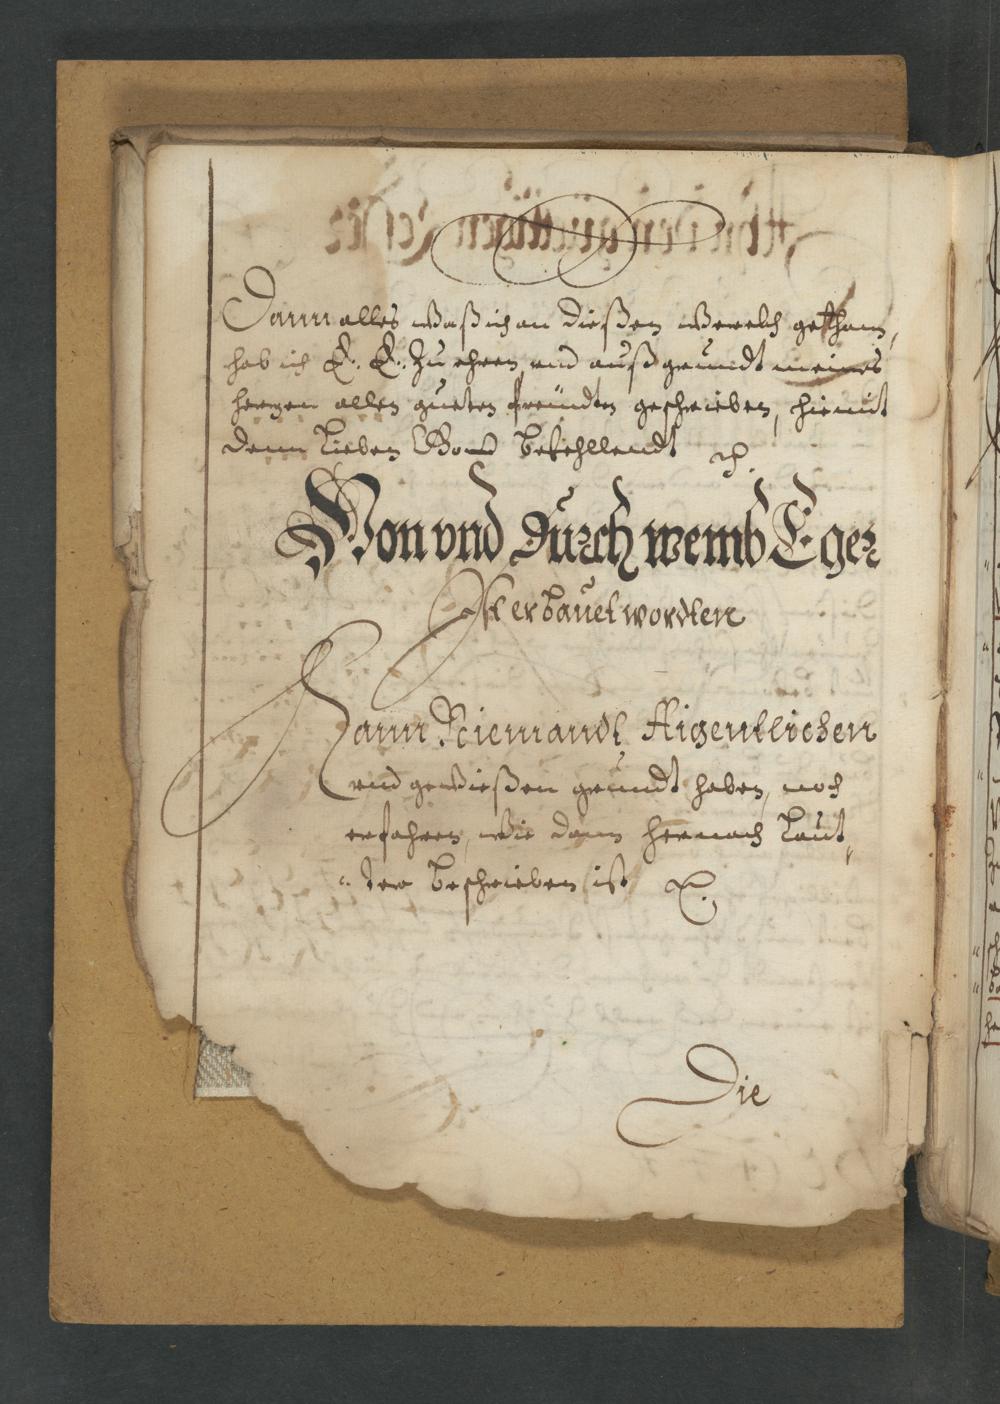 Dann alles waß ich an dießen Werckh gethann,
hab ich E. E. zu ehren, und auß grundt meines
herzen allen gueten freündten geschrieben, hiemit
dem lieben Gott befehllendt
Von vnd Durch wemb Eger
Ist erbauet wordten
Kann Niemandt Aigentlichen
und gewießen grundt haben, noch
erfahren, wie dann hernach laut,
ter beschrieben ist
Die